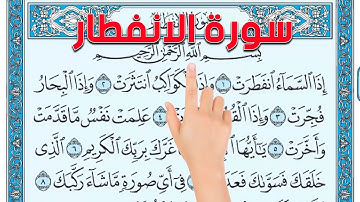 سورة الانفطار
بِسْمِ اللَّهِ الرَّحْمَٰنِ الرَّحِيمِ
إِذَا السَّمَاءُ انفَطَرَتْ ١ وَإِذَا الْكَوَاكِبُ انتَثَرَتْ ٢ وَإِذَا الْبِحَارُ
فُجِّرَتْ ٣ وَإِذَا ٤ عَلِمَتْ نَفْسٌ مَّا قَدَّمَتْ
وَأَخَّرَتْ ٥ يَا أَيُّهَا غَرَّكَ بِرَبِّكَ الْكَرِيمِ ٦ الَّذِي
خَلَقَكَ فَسَوَّاكَ فِي أَيِّ صُورَةٍ مَّا شَاءَ رَكَّبَكَ ٨